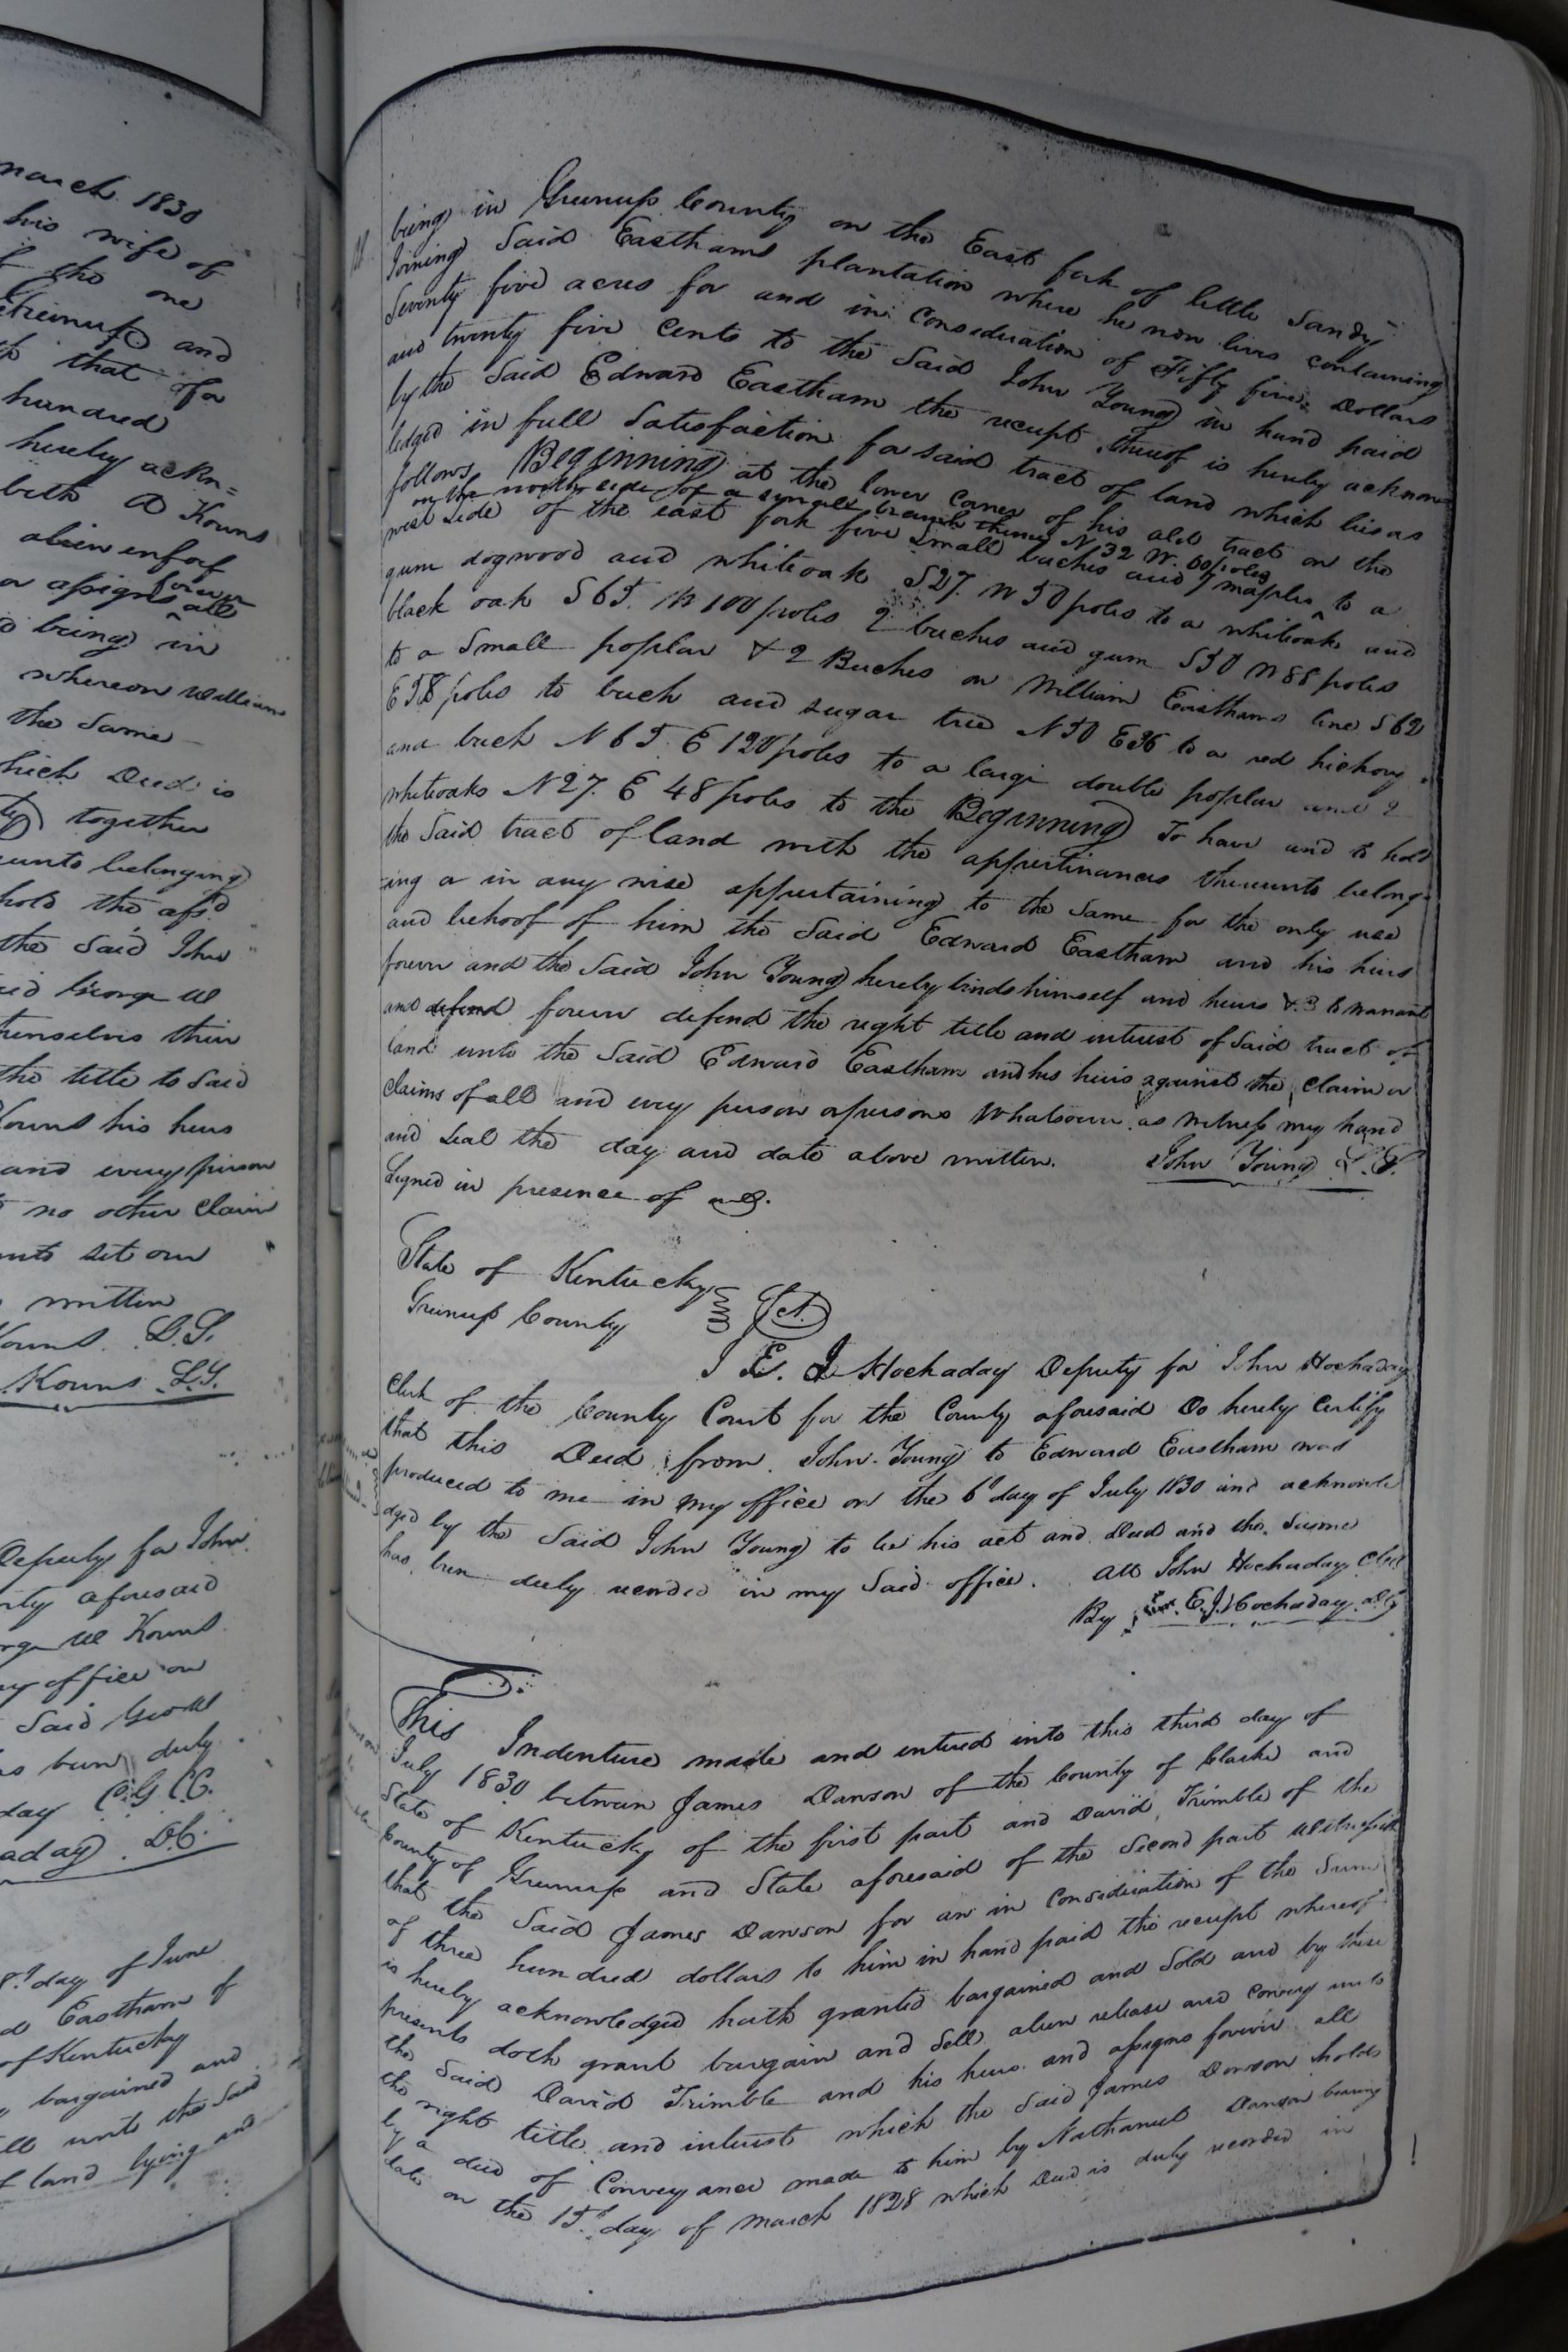 march 1830
his wife of
the one
Greenup and
that for
hundred
hereby ackn=
beth A Kouns
alien enfeof
or assigns forever all
being in
whereon William
the Same
which Deed is
together
unto belonging
hold the afsd
the Said John
George W
themselves their
the title to Said
Kouns his heirs
and every person
no other Claim
unto set our
written
Kouns. L.S.
Kouns L.S.
Deputy for John
aforesaid
W Kouns
my office on
Said George
has been duly
C.G.C.C.
D.C.
day of June
Eastham of
of Kentucky
bargained and
unto the Said
of land lying and
being in Greenup County on the East fork of little Sandy
Joining Said Easthams plantation where he now lives containing
Seventy five acres for and in consideration of Fifty five Dollars
and twenty five Cents to the Said John Young in hand paid
by the Said Edward Eastham the receipt thereof is hereby acknow
ledged in full Satisfaction for said tract of land which lies as
follows Beginning at the lower corner of his old tract on the
on the north side of a small branch thence N 32 W. 60 poles
west side of the east fork five small buches and 7 maples to a
gum dogwood and whiteoak S27. W 50 poles to a whiteoak and
black oak S 65. W 100 poles 2 buches and gum S50 W 88 poles
to a Small poplar & 2 Buches on William Easthams line S 62
E 58 poles to buch and sugar tree N 50 E36 to a red hickory
and buch N 65. E 120 poles to a large double poplar and 2
whiteoaks N27. E 48 poles to the Beginning To have and to hold
the Said tract of land with the appertinances thereunto belong-
ing or in any wise appertaining to the Same for the only use
and behoof of him the Said Edward Eastham and his heirs
forever and the Said John Young hereby binds himself and heirs &.3 to warrant
and defend forever defend the right title and interest of Said tract of
land unto the Said Edward Eastham and his heirs against the claim or
claims of all and every person or persons Whatsoever as witness my hand
and Seal the day and date above written. John Young L.S.
Signed in presence of us.
State of Kentucky
Greenup County Sct.
I E. J Hockaday Deputy for John Hockaday
Clerk of the County Court for the County aforesaid Do hereby Certify
that this Deed from John Young to Edward Eastham was
produced to me in my office on the 6th day of July 1830 and acknowle
dged by the Said John Young to be his act and Deed and the Same
has been duly recorded in my Said office. Att John Hockaday Clk
By E.J. Hockaday D.C.
This Indenture made and entered into this third day of
July 1830 between James Danson of the County of Clarke and
State of Kentucky of the first part and David Trimble of the
County of Greenup and State aforesaid of the Second part Witnesseth
that the Said James Danson for an in Consideration of the Sum
of three hundred dollars to him in hand paid the receipt whereof
is hereby acknowledged hath granted bargained and Sold and by these
presents doth grant bargain and Sell alien release and Convey unto
the Said David Trimble and his heirs and assigns forever all
the right title and interest which the Said James Danson holds
by a deed of Conveyance made to him by Nathaniel Danson bearing
date on the 15th day of March 1828 which Deed is duly recorded in